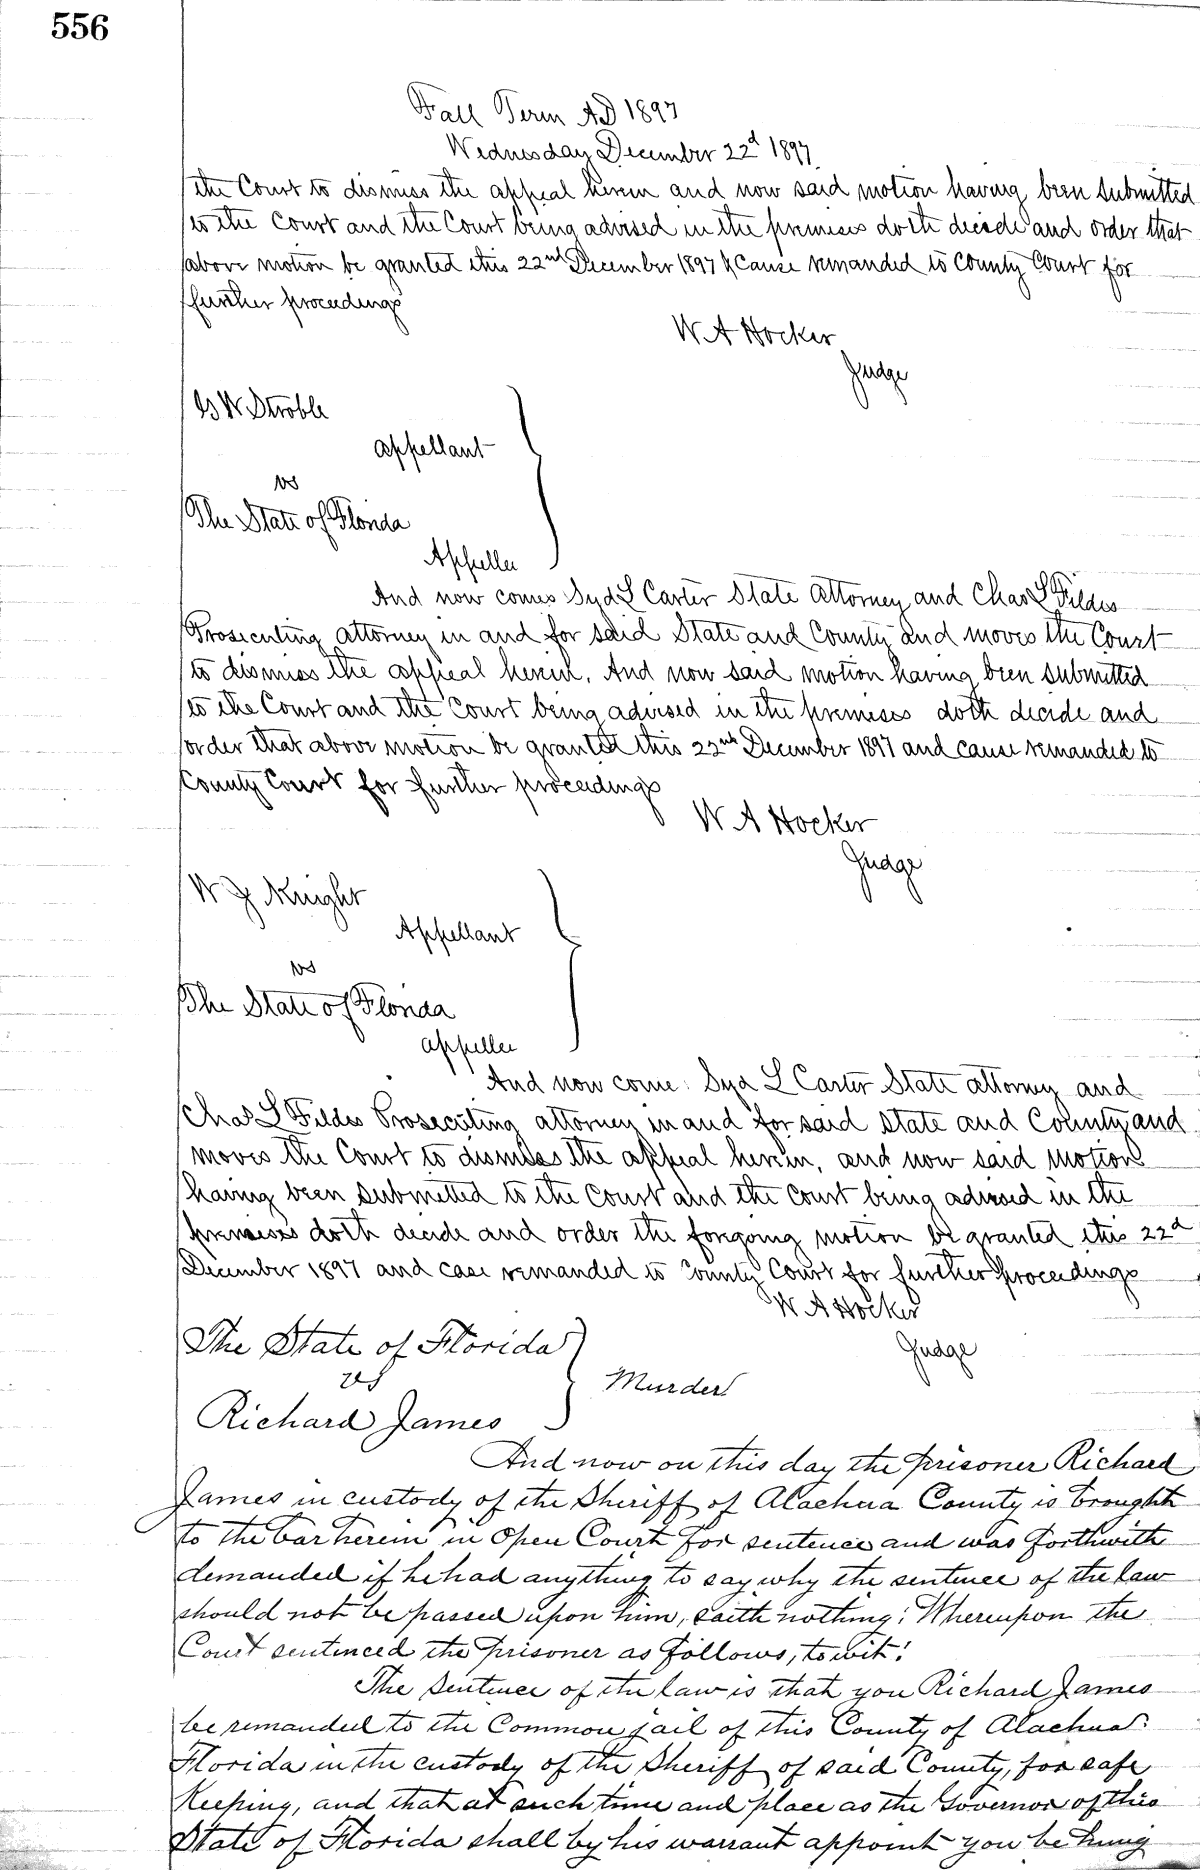 556
Fall Term AD 1897
Wednesday December 22d 1897
the Court to dismiss the appeal herein and now said motion having been submitted
to the Court and the Court being advised in the premises doth decide and order that
above motion be granted this 22nd December 1897 & Cause remanded to County Court for
further proceedings
W A Hocker
Judge
G W Stroble
appellant
vs
The State of Florida
Appellee
And now comes Syd L Carter State Attorney and Chas L Fildes
Prosecuting attorney in and for said State and County and moves the Court
to dismiss the appeal herein. And now said motion having been submitted
to the Court and the Court being advised in the premises doth decide and
order that above motion be granted this 22nd December 1897 and cause remanded to
County Court for further proceedings
W A Hocker
Judge
W J Knight
Appellant
vs
The State of Florida
appellee
And now come Syd L Carter State attorney and
Chas L Fildes Prosecuting attorney in and for said State and County and
moves the Court to dismiss the appeal herein, and now said motion
having been submitted to the Court and the Court being advised in the
premises doth decide and order the forgoing motion be granted this 22d
December 1897 and case remanded to County Court for further proceedings
W A Hocker
Judge
The State of Florida
vs
Murder
Richard James
And now on this day the prisoner Richard
James in custody of the Sheriff of Alachua County is brought
to the bar herein in Open Court for sentence and was forthwith
demanded if he had anything to say why the sentence of the law
should not be passed upon him, saith nothing; Whereupon the
Court sentenced the prisoner as follows, to wit:
The Sentence of the law is that you Richard James
be remanded to the Common jail of this County of Alachua
Florida in the custody of the Sheriff of said County, for safe
Keeping, and that at such time and place as the Governor of this
State of Florida shall by his warrant appoint you be hung